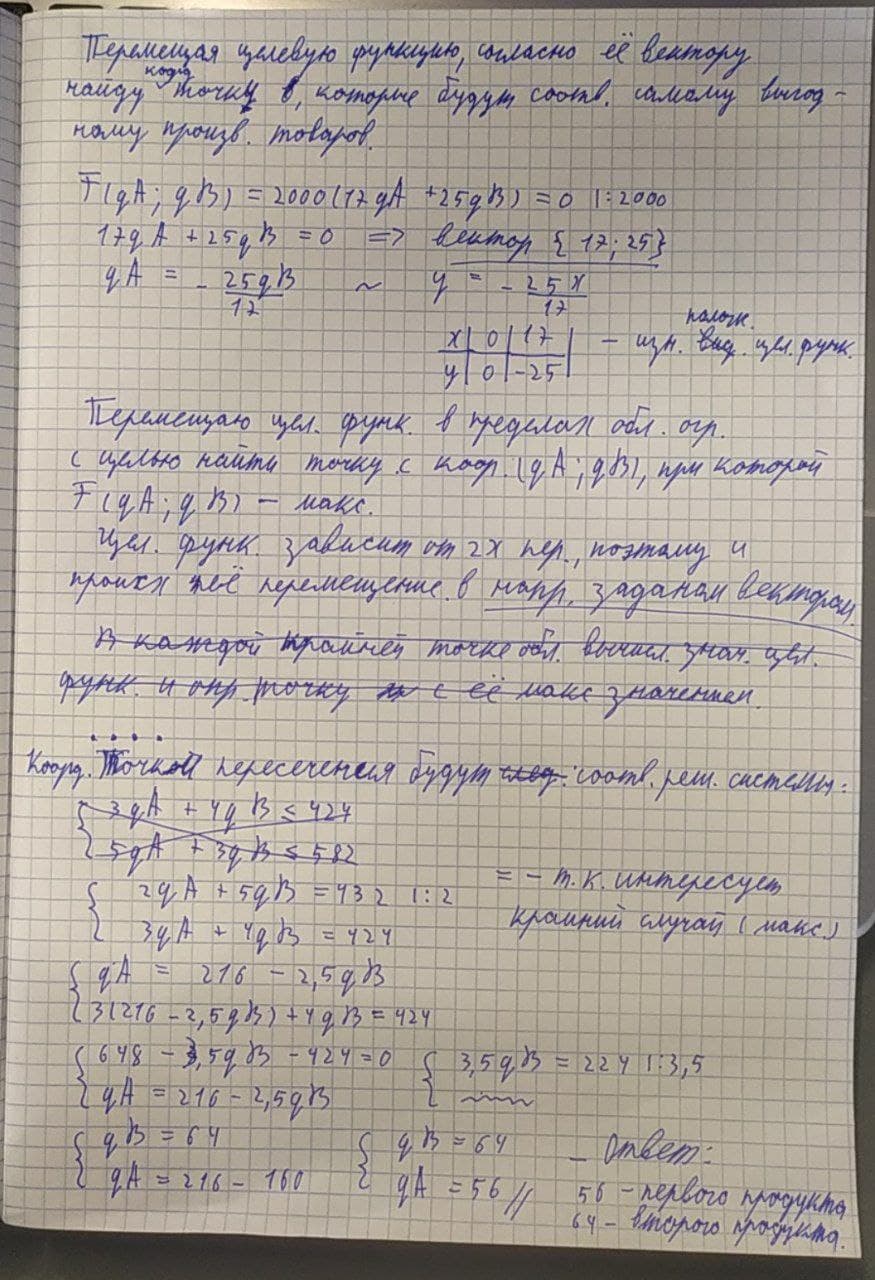 Перемещая целевую функцию, согласно её вектору
найду коорд. точку, которые будут соотв. самому выгод-
ному произв. товаров.
F(qA; qB) = 2000(17qA + 25qB) = 0 |:2000
17qA + 25qB = 0 => вектор {17; 25}
qA = - 25qB/17 ~ y = - 25x/17
x | 0 | 17 | – изн. полож. цел. функ.
y | 0 | -25 |
Перемещаю цел. функ. в пределах обл. огр.
с целью найти точку с коор. (qA; qB), при которой
F(qA; qB) – макс.
Цел. функ. зависит от 2х пер., поэтому и
её перемещение в напр. заданом вектором.
В каждой крайней точке обл. вычисл. знач. цел.
функ. и опр. точку с её макс значением.
....
Коорд. Точки пересечения будут след. соотв. реш. системы:
{ 3qA + 4qB ≤ 424
5qA + 3qB ≤ 582
{ 2qA + 5qB = 432 |:2 = – т.к. интересует
3qA + 4qB = 424 крайний случай (макс)
{ qA = 216 - 2,5qB
3(216 - 2,5qB) + 4qB = 424
{ 648 - 3,5qB - 424 = 0 { 3,5qB = 224 |:3,5
qA = 216 - 2,5qB
{ qB = 64 { qB = 64 – Ответ:
qA = 216 - 160 qA = 56 // 56 – первого продукта
64 – второго продукта.